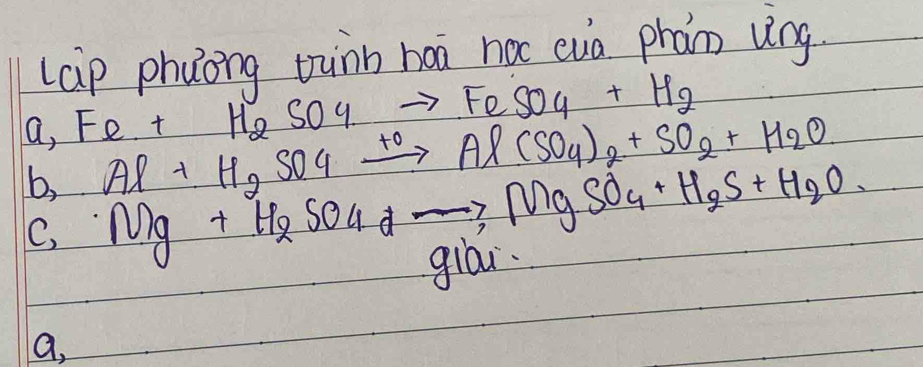 Lập phương trình hoá học của phản ứng.
a, Fe + H2SO4 → FeSO4 + H2
b, Al + H2SO4 t0→ Al(SO4)2 + SO2 + H2O
c, Mg + H2SO4 đ → MgSO4 + H2S + H2O.
giải.
a,